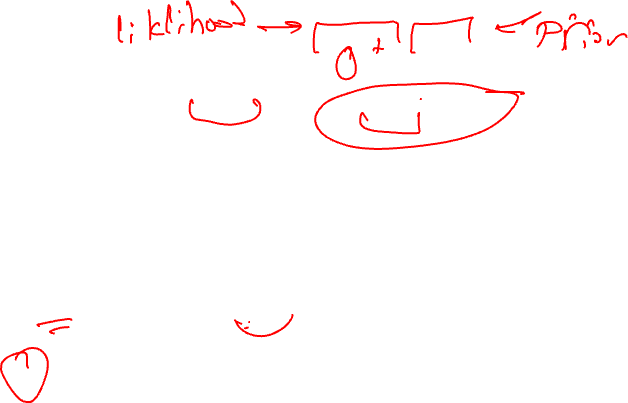 liklihood → ← prior
0 +
=